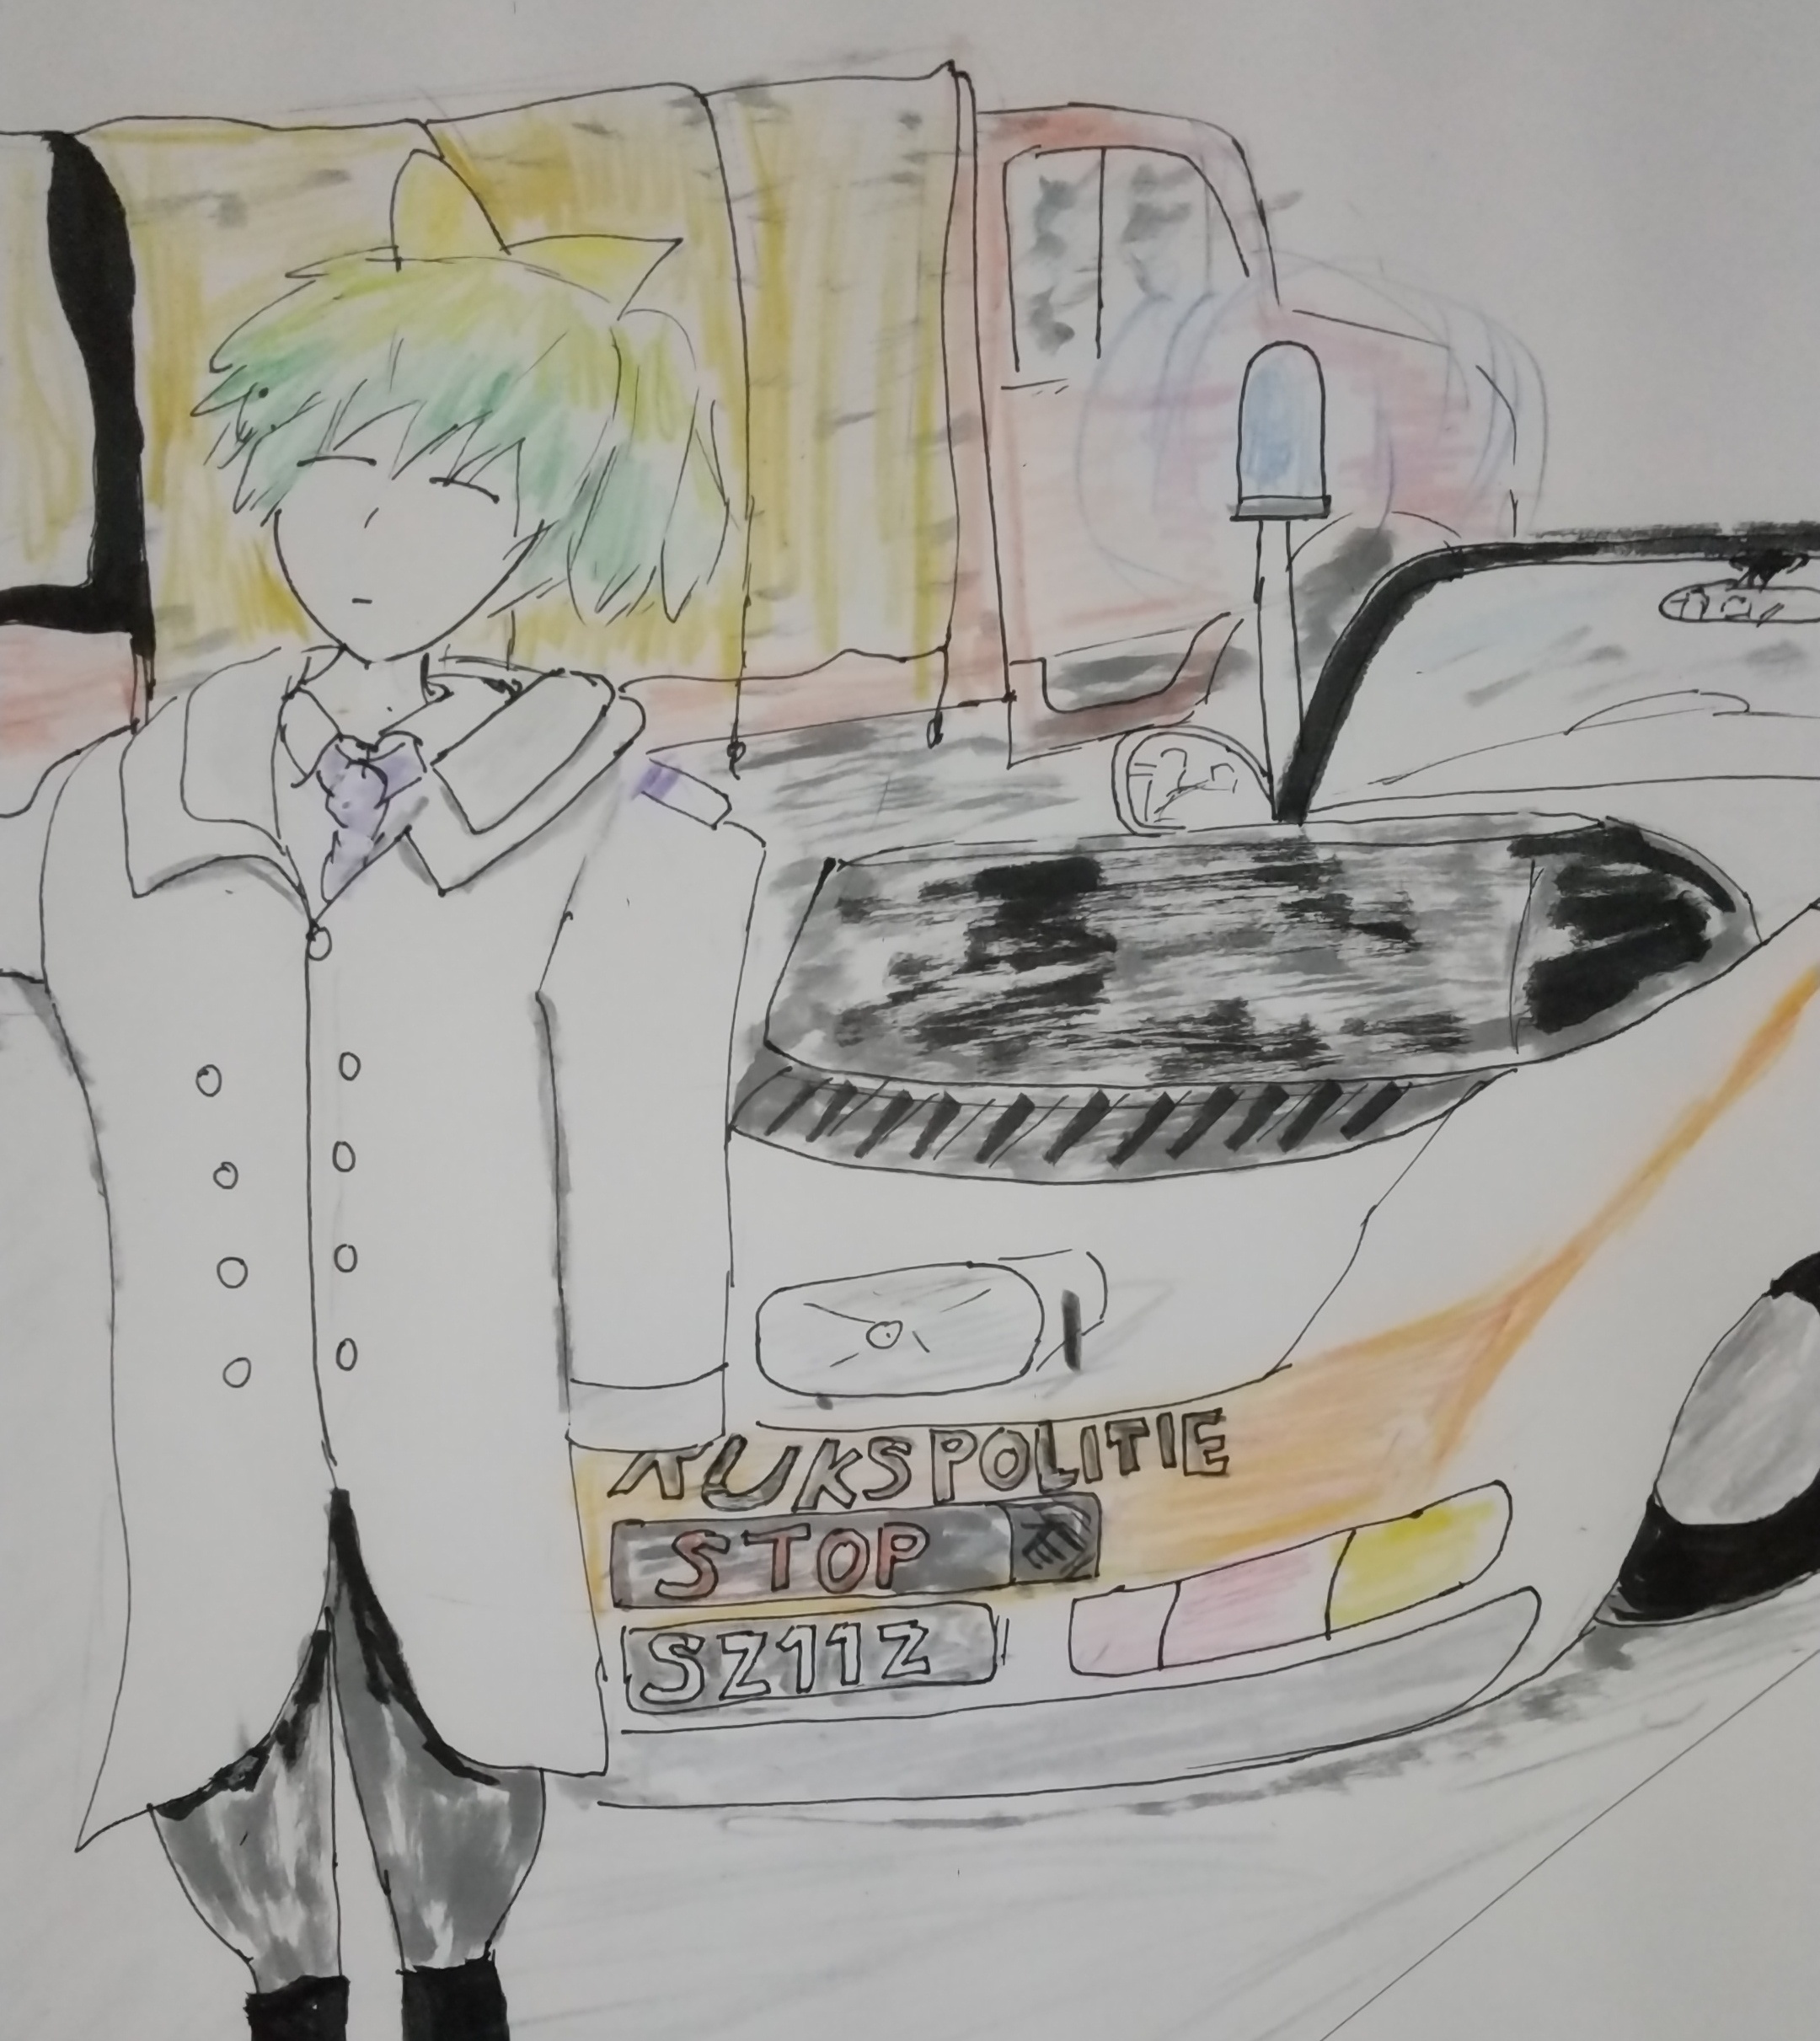 RIJKSPOLITIE
STOP
SZ11Z